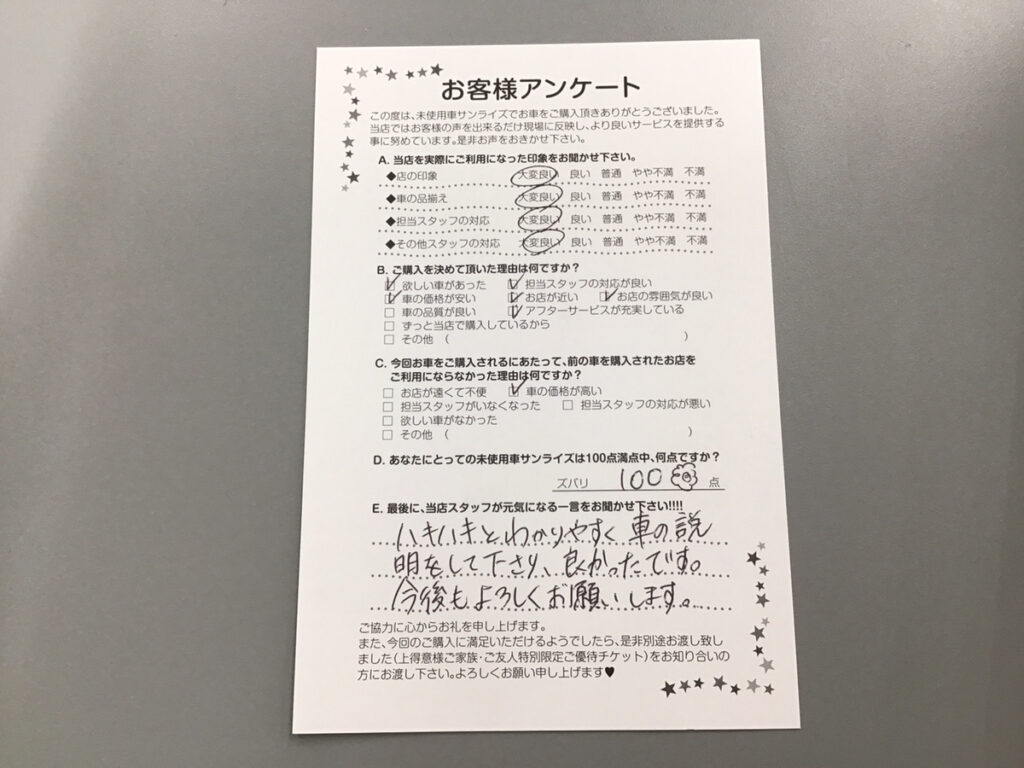 お客様アンケート
この度は、未使用車サンライズでお車をご購入頂きありがとうございました。
当店ではお客様の声を出来るだけ現場に反映し、より良いサービスを提供する
事に努めています。是非お声をおきかせ下さい。
A. 当店を実際にご利用になった印象をお聞かせ下さい。
◆店の印象 大変良い 良い 普通 やや不満 不満
◆車の品揃え 大変良い 良い 普通 やや不満 不満
◆担当スタッフの対応 大変良い 良い 普通 やや不満 不満
◆その他スタッフの対応 大変良い 良い 普通 やや不満 不満
B. ご購入を決めて頂いた理由は何ですか？
☑ 欲しい車があった ☑ 担当スタッフの対応が良い
☑ 車の価格が安い ☑ お店が近い ☑ お店の雰囲気が良い
□ 車の品質が良い ☑ アフターサービスが充実している
□ ずっと当店で購入しているから
□ その他 （ ）
C. 今回お車をご購入されるにあたって、前の車を購入されたお店を
ご利用にならなかった理由は何ですか？
□ お店が遠くて不便 ☑ 車の価格が高い
□ 担当スタッフがいなくなった □ 担当スタッフの対応が悪い
□ 欲しい車がなかった
□ その他 （ ）
D. あなたにとっての未使用車サンライズは100点満点中、何点ですか？
ズバリ 100 点
E. 最後に、当店スタッフが元気になる一言をお聞かせ下さい!!!!
ハキハキとわかりやすく車の説
明をして下さり、良かったです。
今後もよろしくお願いします。
ご協力に心からお礼を申し上げます。
また、今回のご購入に満足いただけるようでしたら、是非別途お渡し致し
ました（上得意様ご家族・ご友人特別限定ご優待チケット）をお知り合いの
方にお渡し下さい。よろしくお願い申し上げます♥